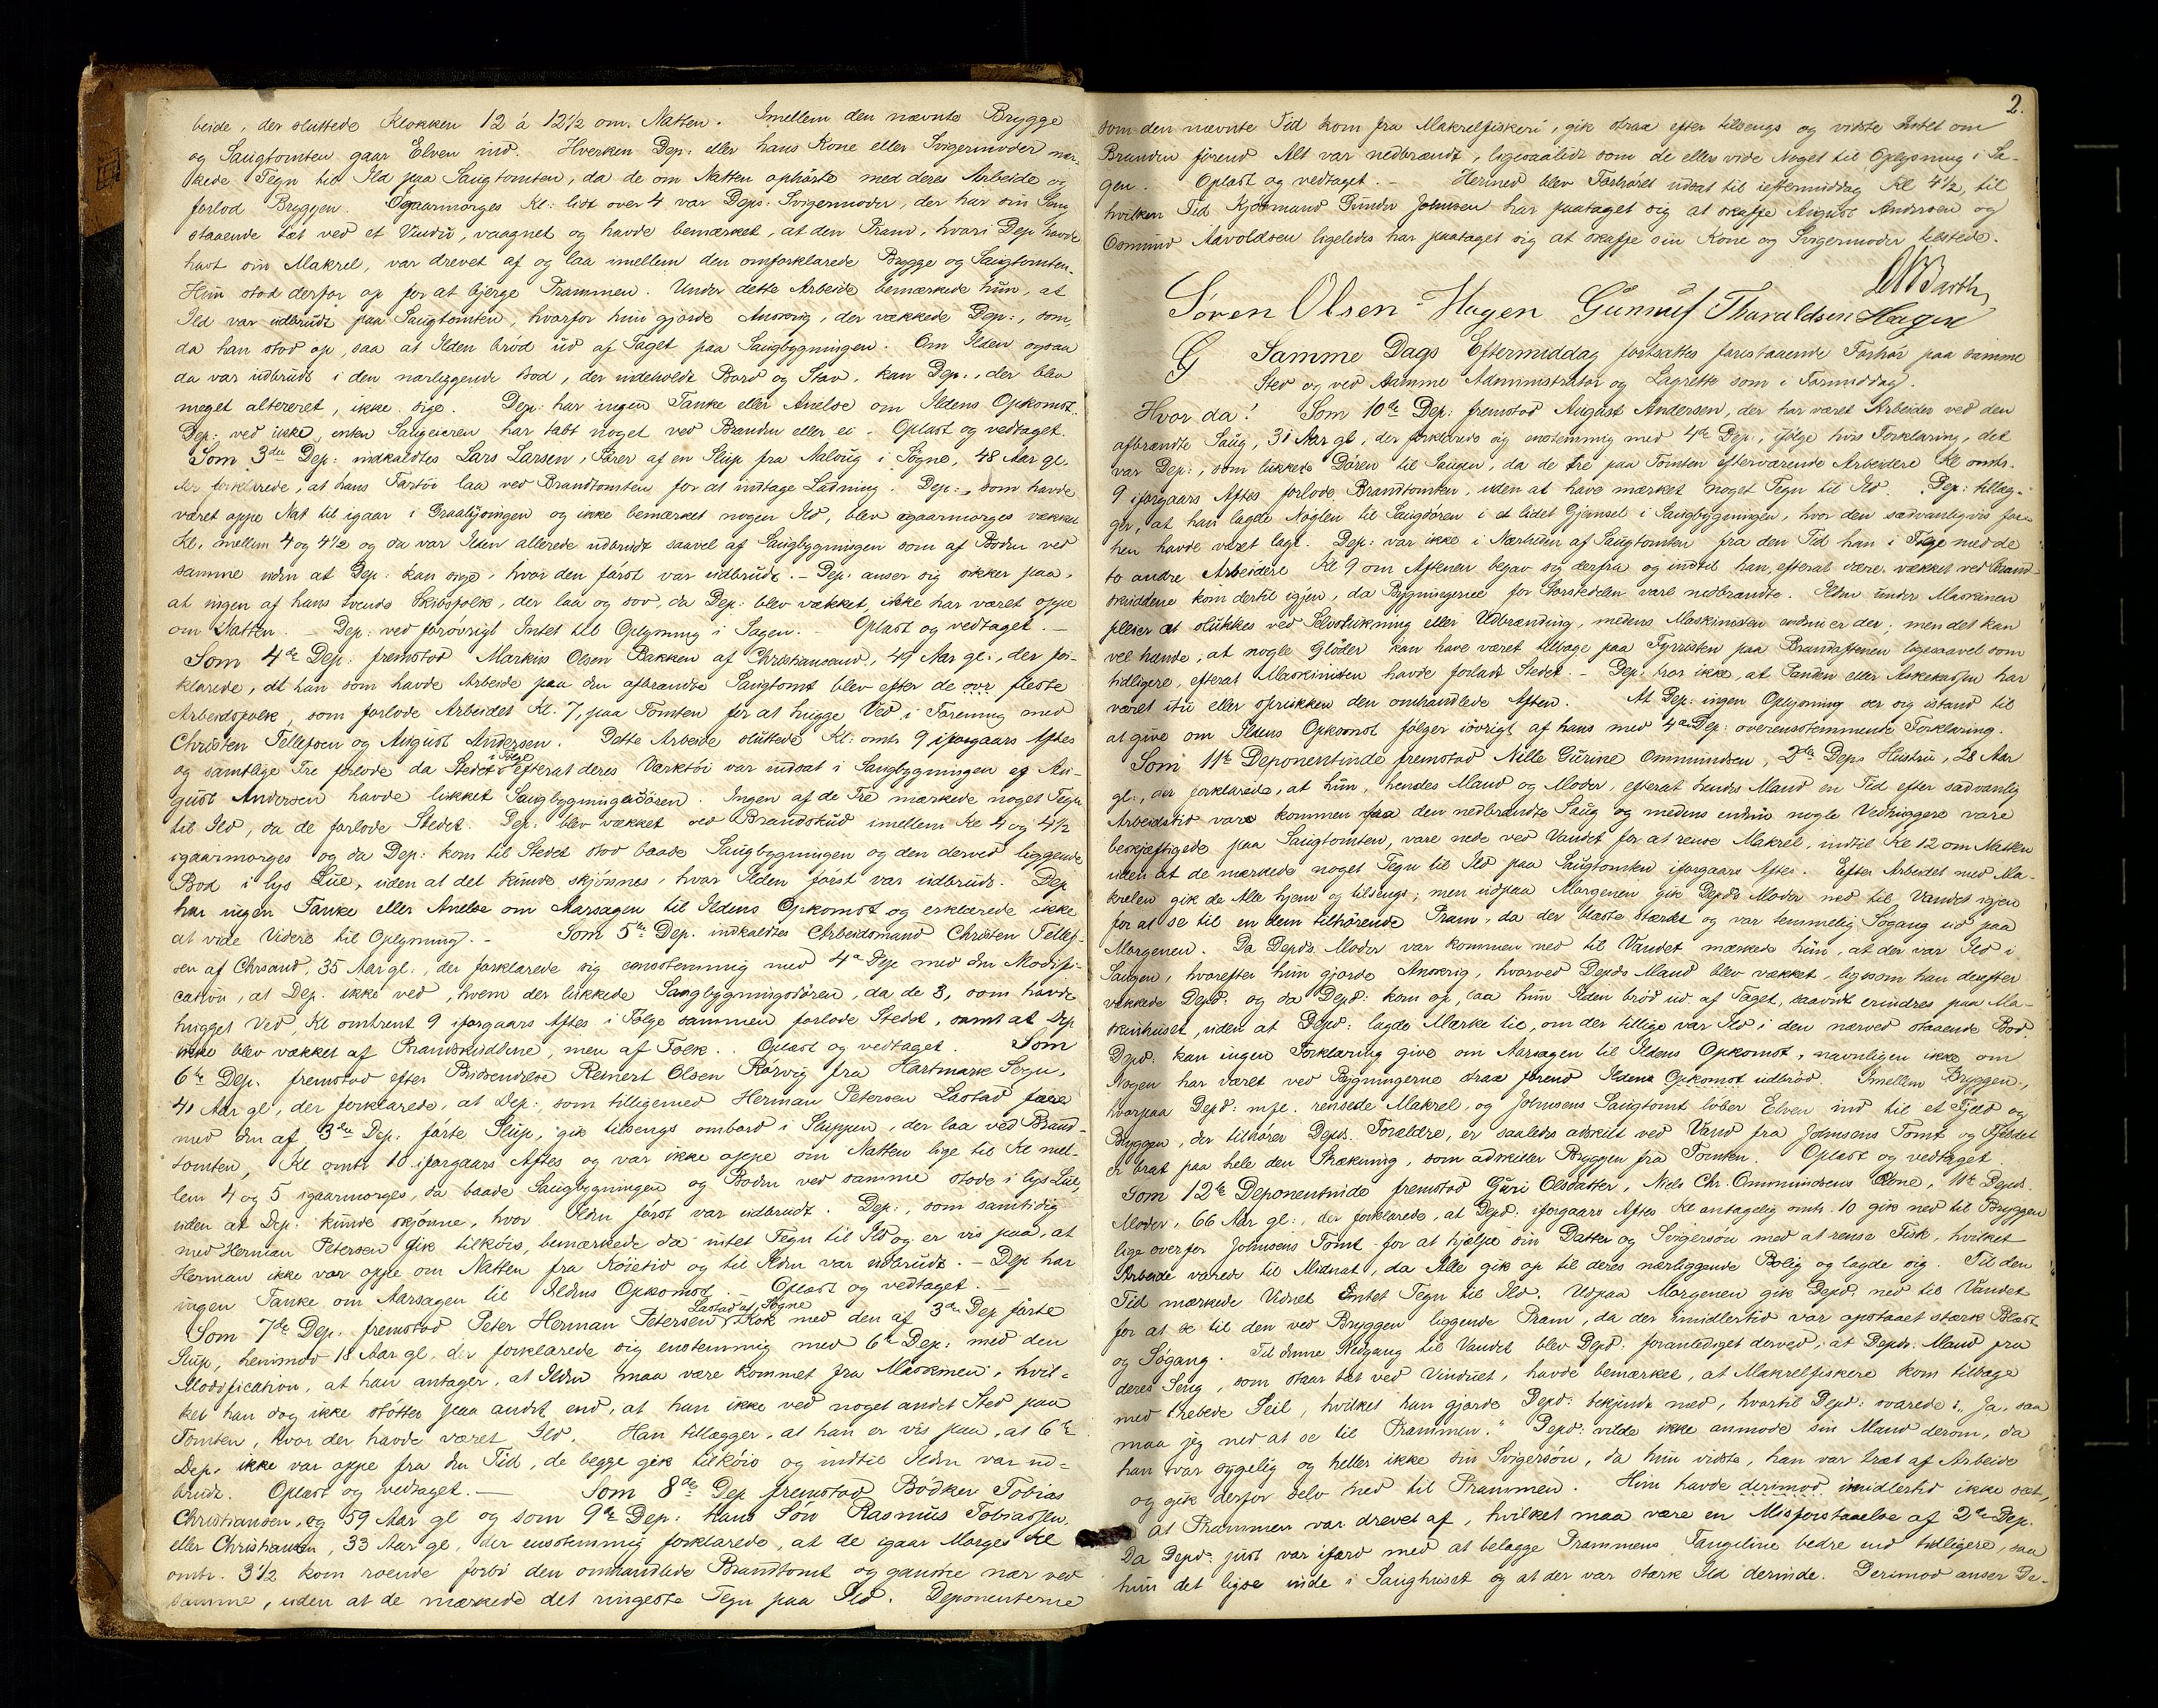 beide, der sluttede Klokken 12 á 12½ om Natten. Imellem den nævnte Brygge
og Saugtomten gaar Elven ind. Hverken Dep: eller hans Kone eller Svigermoder mær-
kede Tegn til Ild paa Saugtomten, da de om Natten ophørte med deres Arbeide og
forlod Bryggen. Igaarmorges Kl: lidt over 4 var Deps. Svigermoder, der har sin Seng
staaende tæt ved et Vindu, vaagnet og havde bemærket, at den Pram, hvori Dep havde
havt sin Makrel, var drevet af og laa imellem den omforklarede Brygge og Saugtomten.
Hun stod derfor op for at bjerge Prammen. Under dette Arbeide bemærkede hun, at
Ild var udbrudt paa Saugtomten, hvorfor hun gjorde Anskrig, der vækkede Dep:, som,
da han stod op, saa at Ilden brød ud af Taget paa Saugbygningen. Om Ilden ogsaa
da var udbrudt i den nærliggende Bod, der indeholdt Bord og Stav, kan Dep:, der blev
meget altereret, ikke sige. Dep: har ingen Tanke eller Anelse om Ildens Opkomst.
Dep: ved ikke, enten Saugeieren har tabt noget ved Branden eller ei. Oplæst og vedtaget.
Som 3die Dep: indkaldtes Lars Larsen, Fører af en Slup fra Naloug i Søgne, 48 Aar gl.
der forklarede, at hans Fartøi laa ved Brandtomten for at indtage Ladning. Dep:, som havde
været oppe Nat til igaar i Graalysingen og ikke bemærket nogen Ild, blev igaarmorges vækket
Kl. mellem 4 og 4½ og da var Ilden allerede udbrudt saavel af Saugbygningen som af Boden ved
samme uden at Dep: kan sige, hvor den først var udbrudt. – Dep. anser sig sikker paa,
at ingen af hans tvende Skibsfolk, der laa og sov, da Dep: blev vækket, ikke har været oppe
om Natten. – Dep: ved forøvrigt Intet til Oplysning i Sagen. – Oplæst og vedtaget. –
Som 4de Dep: fremstod Markus Olsen Bakken af Christianssand, 49 Aar gl:, der for-
klarede, at han som havde Arbeide paa den afbrændte Saugtomt blev efter de fleste
Arbeidsfolk, som forlode Arbeidet Kl. 7, paa Tomten for at hugge Ved i Forening med
Christen Tellefsen og August Andersen. Dette Arbeide sluttede Kl: omtr 9 iforgaars Aftes
og samtlige Tre forlode da Stedet i Følge efterat deres Værktøi var indsat i Saugbygningen og Au-
gust Andersen havde lukket Saugbygningsdøren. Ingen af de Tre mærkede noget Tegn
til Ild, da de forlode Stedet. Dep: blev vækket ved Brandskud imellem Kl 4 og 4½
igaarmorges og da Dep: kom til Stedet stod baade Saugbygningen og den derved liggende
Bod i lys Lue, uden at det kunde skjønnes, hvor Ilden først var udbrudt. Dep
har ingen Tanke eller Anelse om Aarsagen til Ildens Opkomst og erklærede ikke
at vide Videre til Oplysning. – Som 5te Dep. indkaldtes Arbeidsmand Christen Tellef-
sen af Chrsand, 35 Aar gl:, der forklarede sig ensstemmig med 4de Dep med den Modifi-
cation, at Dep. ikke ved, hvem der lukkede Saugbygningsdøren, da de 3, som havde
hugget Ved, Kl omtrent 9 iforgaars Aftes i Følge sammen forlode Stedet, samt at Dep
ikke blev vækket af Brandskuddene, men af Folk. Oplæst og vedtaget. Som
6te Dep. fremstod efter Reinert Olsen Korvig fra Hartmark Sogn,
41 Aar gl, der forklarede, at Dep:, som tilligemed Herman Petersen Lastad fare
med den af 3die Dep. førte Slup, gik tilsengs ombord i Sluppen, der laa ved Brand-
tomten, Kl omtr 10 iforgaars Aftes og var ikke oppe om Natten lige til Kl mel-
lem 4 og 5 igaarmorges, da baade Saugbygningen og Boden ved samme stode i lys Lue,
uden at Dep: kunde skjønne, hvor Ilden først var udbrudt. Dep:, som samtidig
med Herman Petersen gik tilkøis, bemærkede da intet Tegn til Ild og er vis paa, at
Herman ikke var oppe om Natten fra Køietid og til Ilden var udbrudt. – Dep har
ingen Tanke om Aarsagen til Ildens Opkomst. Oplæst og vedtaget. –
Som 7de Dep. fremstod Peter Herman Petersen Lastad af Søgne, Kok med den af 3die Dep førte
Slup, henimod 18 Aar gl, der forklarede sig enstemmig med 6te Dep: med den
Modification, at han antager, at Ilden maa være kommet fra Maskinen, hvil-
ket han dog ikke støtter paa andet end, at han ikke ved noget andet Sted paa
Tomten, hvor der havde været Ild. Han tillægger, at han er vis paa, at 6te
Dep. ikke var oppe fra den Tid, de begge gik tilkøis og indtil Ilden var ud-
brudt. Oplæst og vedtaget. – Som 8de Dep fremstod Bødker Tobias
Christiansen, 59 Aar gl og som 9de Dep: hans Søn Rasmus Tobiassen
eller Christiansen, 33 Aar gl, der ensstemmig forklarede, at de igaar Morges Kl
omtr. 3½ kom roende forbi den omhandlede Brandtomt og ganske nær ved
samme, uden at de mærkede det ringeste Tegn paa Ild. Deponenterne
2.
som den nævnte Tid kom fra Makrelfiskeri, gik strax efter tilsengs og vidste Intet om
Branden førend Alt var nedbrændt, ligesaalidt som de eller vide Noget til Oplysning i Sa-
gen. Oplæst og vedtaget. – Hermed blev Forhøret udsat til ieftermiddag Kl 4½, til
hvilken Tid Kjøbmand Gunder Johnsen har paataget sig at skaffe August Andersen og
Osmund Aavoldsen ligeledes har paataget sig at skaffe sin Kone og Svigermoder tilstede.
Barth
Søren Olsen Hagen Gunnuf Tharaldsen Hagen
Samme Dags Eftermiddag fortsattes forestaaende Forhør paa samme
Sted og ved samme Administrator og Lagrette som i Formiddag.
Hvor da! Som 10de Dep: fremstod August Andersen, der har været Arbeider ved den
afbrændte Saug, 31 Aar gl, der forklarede sig enstemmig med 4de Dep:, ifølge hvis Forklaring, det
var Dep:, som lukkede Døren til Saugen, da de tre paa Tomten efterværende Arbeidere Kl omtr.
9 iforgaars Aftes forlode Brandtomten, uden at have mærket noget Tegn til Ild. Dep: tillæg-
ger, at han lagde Nøglen til Saugdøren i et lidet Gjemsel i Saugbygningen, hvor den sædvanligvis for-
hen havde været lagt. Dep: var ikke i Nærheden af Saugtomten fra den Tid han i Følge med de
to andre Arbeidere Kl 9 om Aftenen begav sig derfra og indtil han, efterat være vækket ved Brand-
skuddene kom dertil igjen, da Bygningerne for Størstedelen vare nedbrændte. Ilden under Maskinen
pleier at slukkes ved Selvslukning eller Udbrænding, medens Maskinisten endnu er der; men det kan
vel hænde, at nogle Gløder kan have været tilbage paa Fyrristen paa Brandaftenen ligesaavel som
tidligere, efterat Maskinisten havde forladt Stedet. – Dep: tror ikke, at Panden eller Askekassen har
været itu eller sprukken den omhandlede Aften. At Dep: ingen Oplysning ser sig istand til
at give om Ildens Opkomst følger iøvrigt af hans med 4de Dep: overensstemmende Forklaring.
Som 11te Deponentinde fremstod Nille Gurine Ommundsen, 2den Deps Hustru, 28 Aar
gl:, der forklarede, at hun, hendes Mand og Moder, efterat hendes Mand en Tid efter sædvanlig
Arbeidstid vare kommen fra den nedbrændte Saug og medens endnu nogle Vedhuggere vare
beskjæftigede paa Saugtomten, vare nede ved Vandet for at rense Makrel, indtil Kl 12 om Natten
uden at de mærkede noget Tegn til Ild paa Saugtomten iforgaars Aftes. Efter Arbeidet med Ma-
krelen gik de Alle hjem og tilsengs; men udpaa Morgenen gik Depds Moder ned til Vandet igjen
for at se til en dem tilhørende Pram, da der blæste stærkt og var temmelig Søgang ud paa
Morgenen. Da Depds. Moder var kommen ned til Vandet mærkede hun, at der var Ild i
Saugen, hvorefter hun gjorde Anskrig, hvorved Depds Mand blev vækket, ligesom han derefter
vækkede Depd: og da Depd: kom op, saa hun Ilden brød ud af Taget, saavidt erindres paa Ma-
skinhuset, uden at Depd: lagde Mærke til, om der tillige var Ild i den nærved staaende Bod.
Depd: kan ingen Forklaring give om Aarsagen til Ildens Opkomst, navnligen ikke om
Nogen har været ved Bygningerne strax førend Ildens Opkomst udbrød. Imellem Bryggen,
hvorpaa Depd: m.fl. rensede Makrel, og Johnsens Saugtomt løber Elven ind til et Fjeld og
Bryggen, der tilhører Depds. Forældre, er saaledes adskilt ved Vand fra Johnsens Tomt og Fjeldet
er brat paa hele den Strækning, som adskiller Bryggen fra Tomten. Oplæst og vedtaget.
Som 12te Deponentinde fremstod Guri Olsdatter, Niels Chr. Ommundsens Kone, 11te Depds.
Moder, 66 Aar gl:, der forklarede, at Depd: iforgaars Aftes Kl antagelig omtr. 10 gik ned til Bryggen
lige overfor Johnsens Tomt for at hjælpe sin Datter og Svigersøn med at rense Fisk, hvilket
Arbeide varede til Midnat, da Alle gik op til deres nærliggende Bolig og lagde sig. Til den
Tid mærkede Vidnet Intet Tegn til Ild. Udpaa Morgenen gik Depd. ned til Vandet
for at se til den ved Bryggen liggende Pram, da der imidlertid var opstaaet stærk Blæst
og Søgang. Til denne Nedgang til Vandet blev Depd. foranlediget derved, at Depds: Mand fra
deres Seng, som staar tæt ved Vinduet, havde bemærket, at Makrelfiskere kom tilbage
med rebede Seil, hvilket han gjorde Depd: bekjendt med, hvortil Depd: svarede: „Ja, saa
maa jeg ned at se til Prammen.“ Depd: vilde ikke anmode sin Mand derom, da
han var sygelig og heller ikke sin Svigersøn, da hun vidste, han var træt af Arbeide
og gik derfor selv ned til Prammen. Hun havde derimod imidlertid ikke seet,
at Prammen var drevet af, hvilket maa være en Misforstaaelse af 2den Dep.
Da Depd: just var ifærd med at belægge Prammens Fangeline bedre end tidligere, saa
hun det lyse inde i Saughuset og at der var stærk Ild derinde. Derimod anser De-